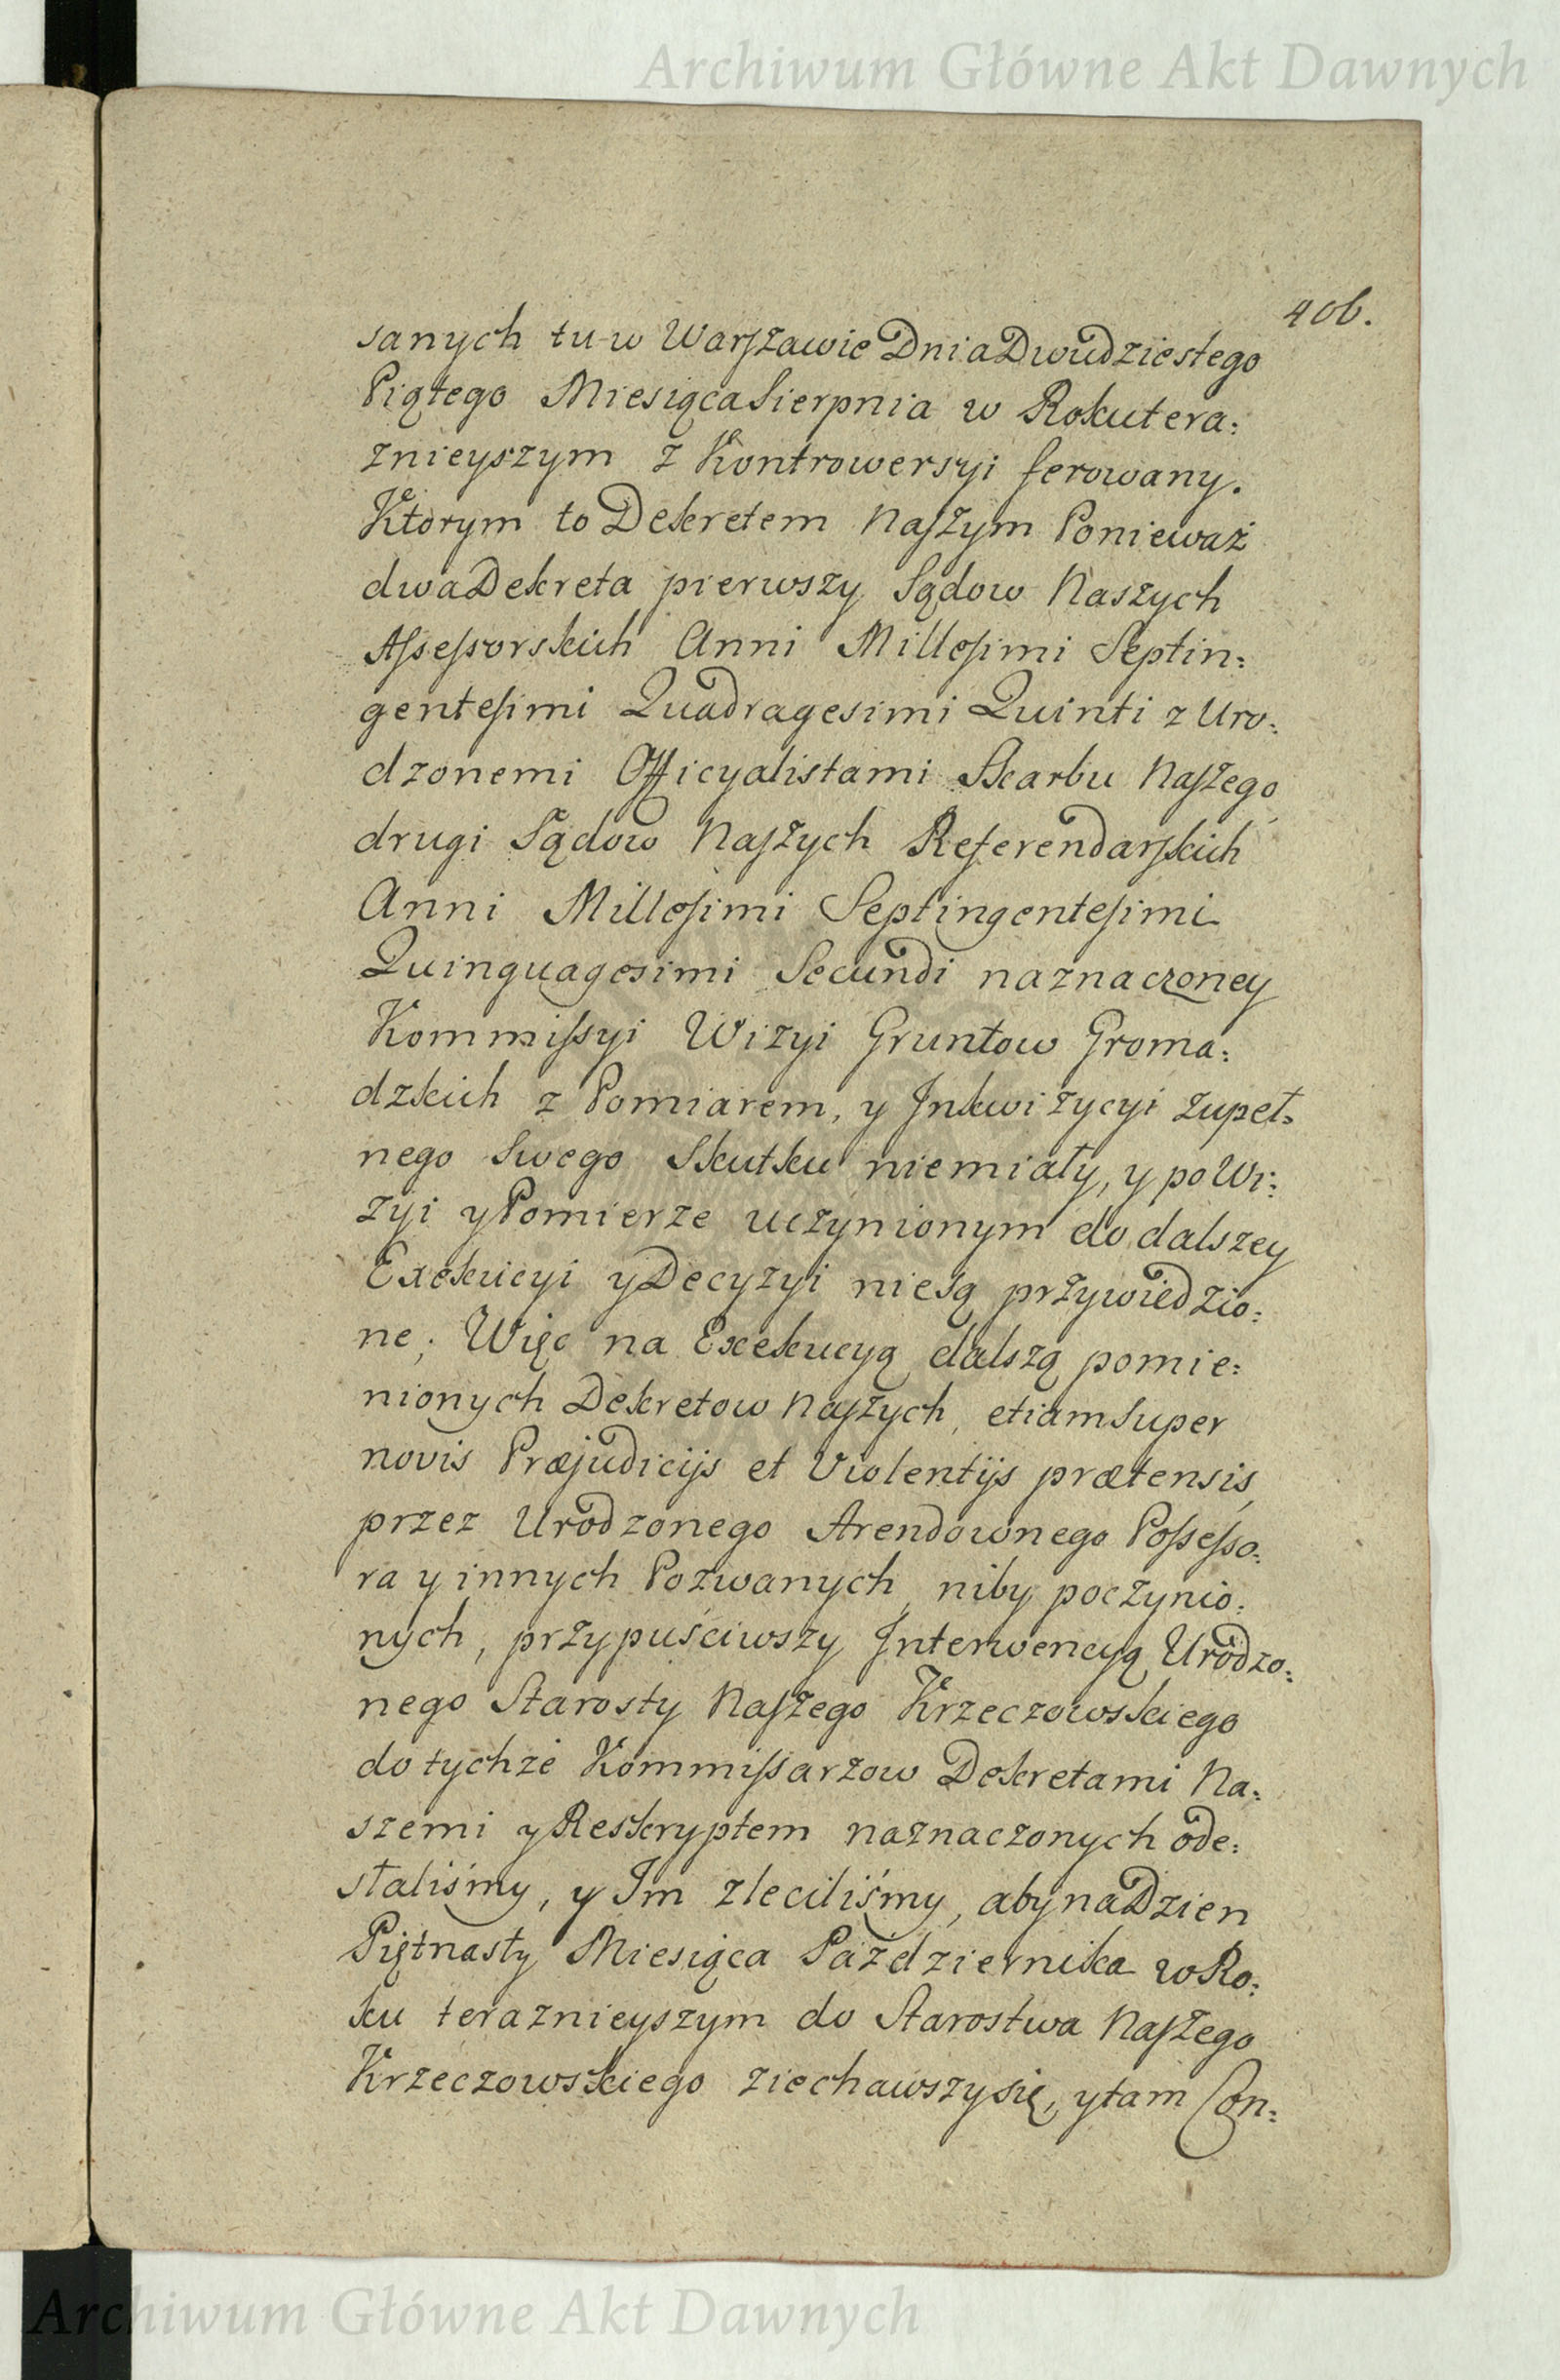 Archiwum Główne Akt Dawnych
406.
sanych tu w Warſzawie Dnia Dwudziestego
Piątego Miesiąca Sierpnia w Roku tera:
znieyszym z Kontrowersyi ferowany.
Ktorym to Dekretem Naſzym Ponieważ
dwa Dekreta pierwszy Sądow Naszych
Aſseſsorskich Anni Milleſimi Septin:
genteſimi Quadragesimi Quinti z Uro:
dzonemi Officyalistami Skarbu Naſzego
drugi Sądow Naſzych Referendarſkich
Anni Milleſimi Septingenteſimi
Quinquagesimi Secundi naznaczoney
Kommiſsyi Wizyi Gruntow Groma:
dzkich z Pomiarem, y Inkwizycyi zupeł:
nego Swego Skutku niemiały, y po Wi:
zyi y Pomierze uczynionym do dalszey
Exekucyi y Decyzyi niesą przywiedzio:
ne; Więc na Exekucyą dalszą pomie:
nionych Dekretow Naſzych, etiam Super
novis Præjudicijs et Violentijs prætensis,
przez Urodzonego Arendownego Poſseſso:
ra y innych Pozwanych, niby poczynio:
nych, przypuściwszy Interwencyą Urodzo:
nego Starosty Naſzego Krzeczowskiego
do tychże Kommiſsarzow Dekretami Na:
szemi y Reskryptem naznaczonych ode:
staliśmy, y Im zleciliśmy, aby na Dzien
Piętnasty Miesiąca Października w Ro:
ku teraznieyszym do Starostwa Naſzego
Krzeczowskiego ziechawszy się, y tam Con:
Archiwum Główne Akt Dawnych